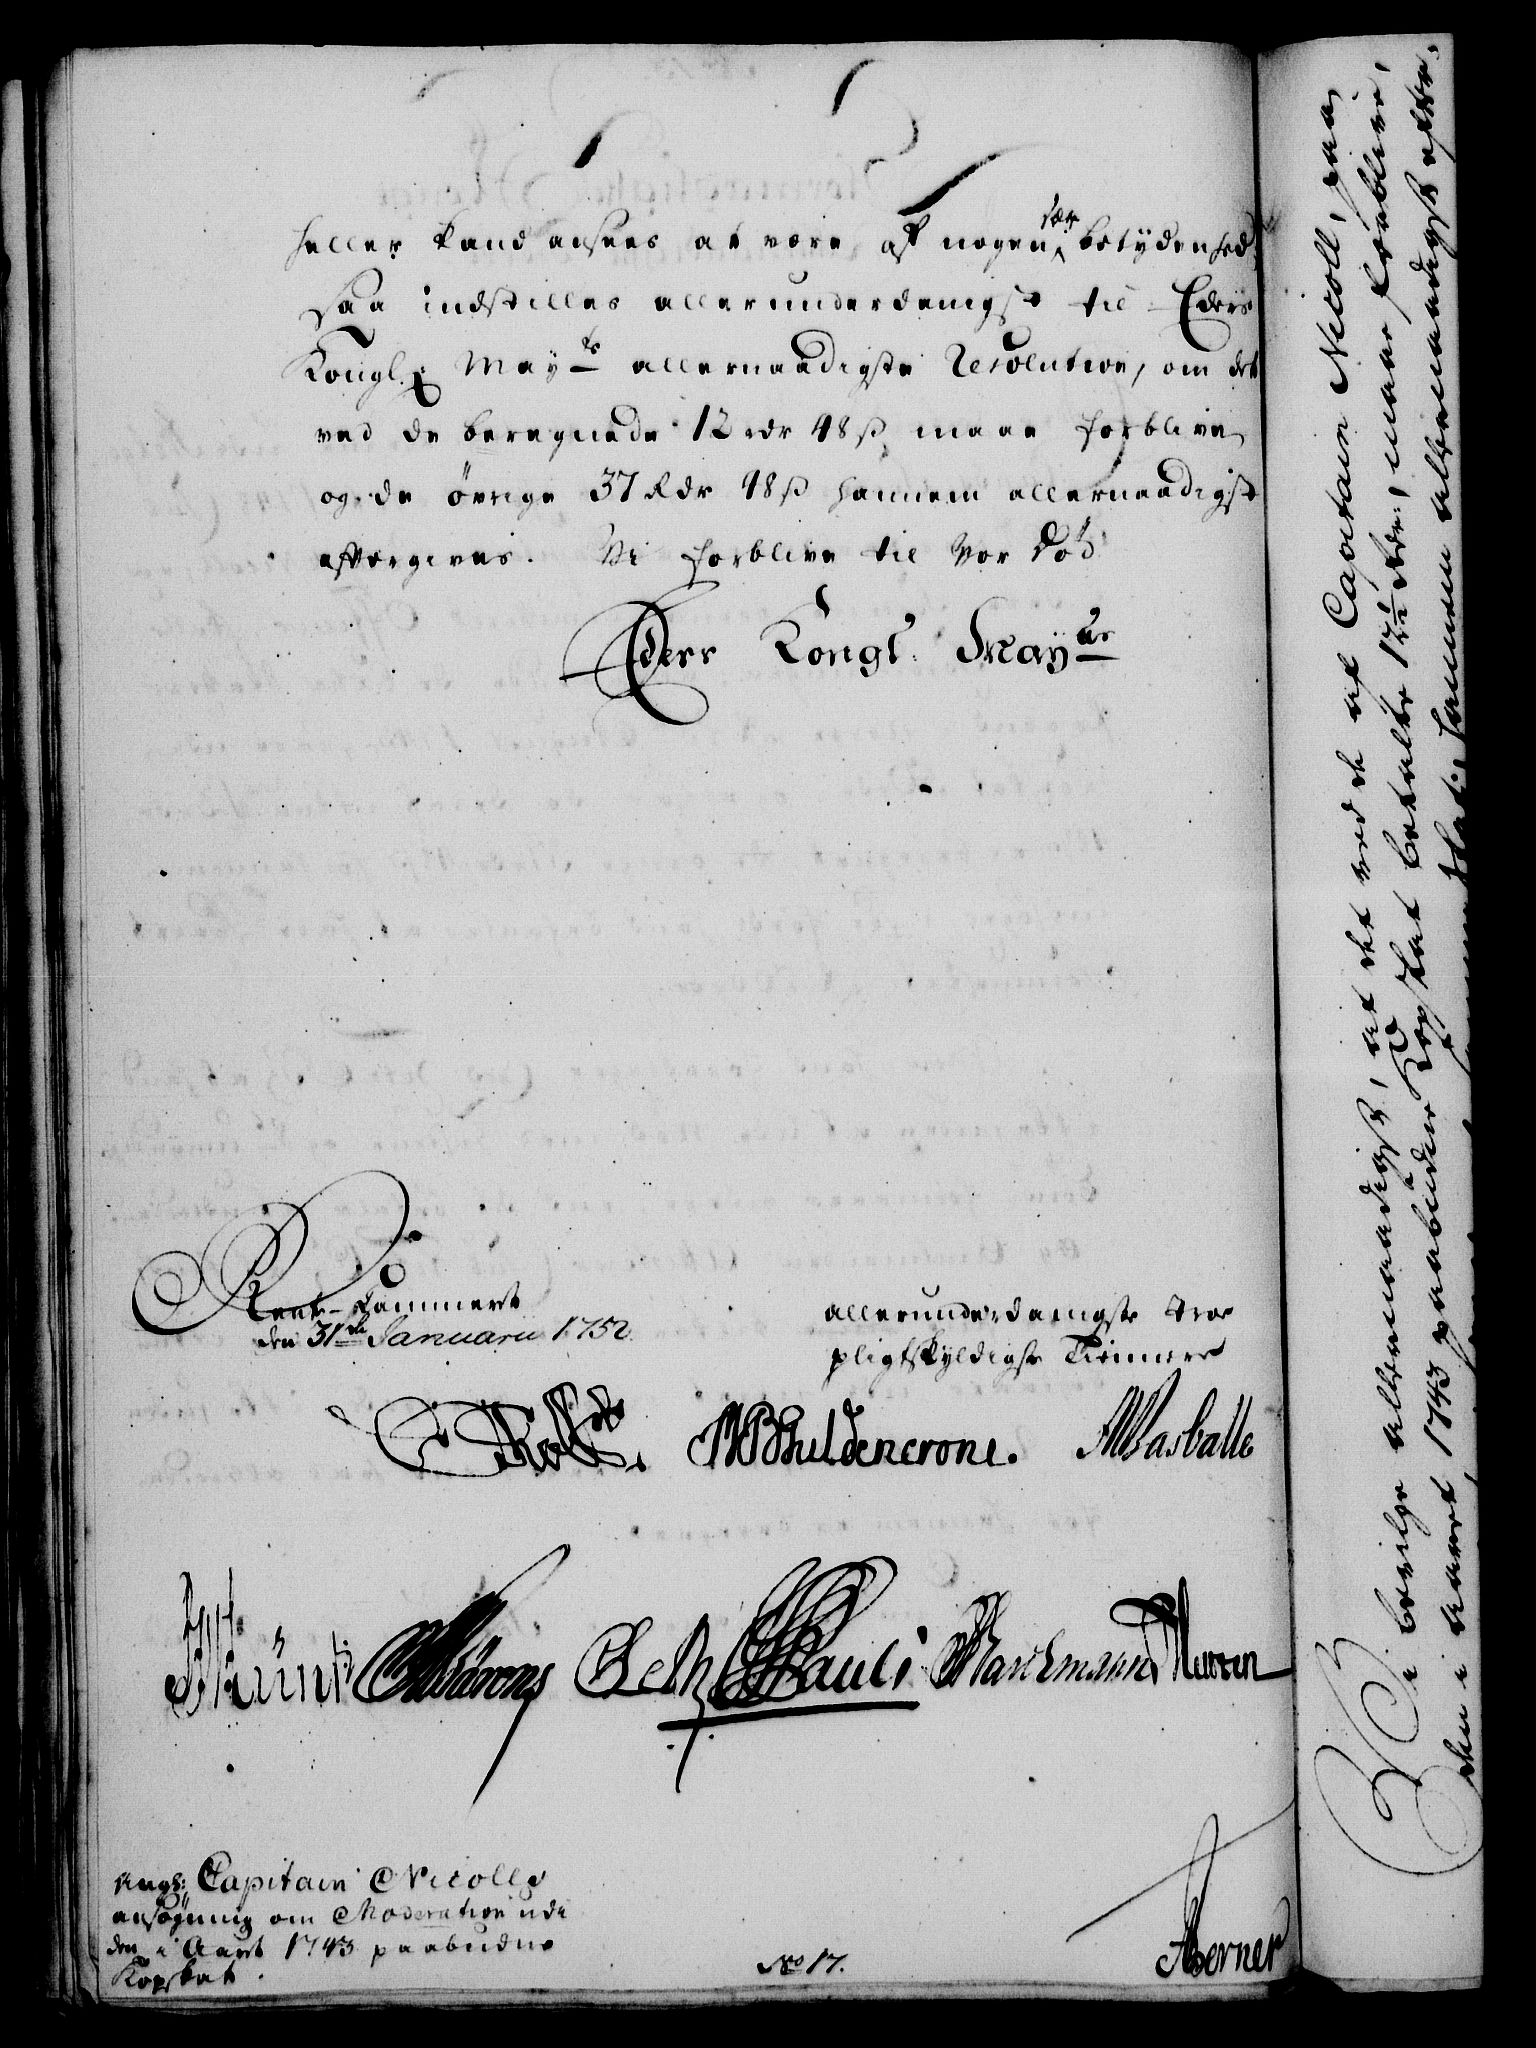 heller kand ansees at være af nogen sær betydenhed
saa indstilles allerunderdanigst til Eders
Kongl. Mayts allernaadigste Resolution, om det
ved de beregnede 12 rdr 48 ß maae forblive
og de øvrige 37 Rdr 48 ß hannem allernaadigst
eftergives. Vi forblive til Vor død
Eders Kongl. Mayts
Rente-Cammeret
den 31te Januarii 1752.
allerunderdanigste troe
pligtskyldigste Tienere
Holst. Gyldencrone. Basballe
Pauli
Berner
Ang: Capitain Nicolls
ansøgning om Moderation udi
den i Aaret 1743 paabudne
Kopskat.
No 17.
Vi bevilge allernaadigst, at det ved de af Capitain Nicoll, paa
den i aaret 1743 paabudne Kopskat betalte 12½ rdr., maae forblive,
hannem allernaadigst efter-